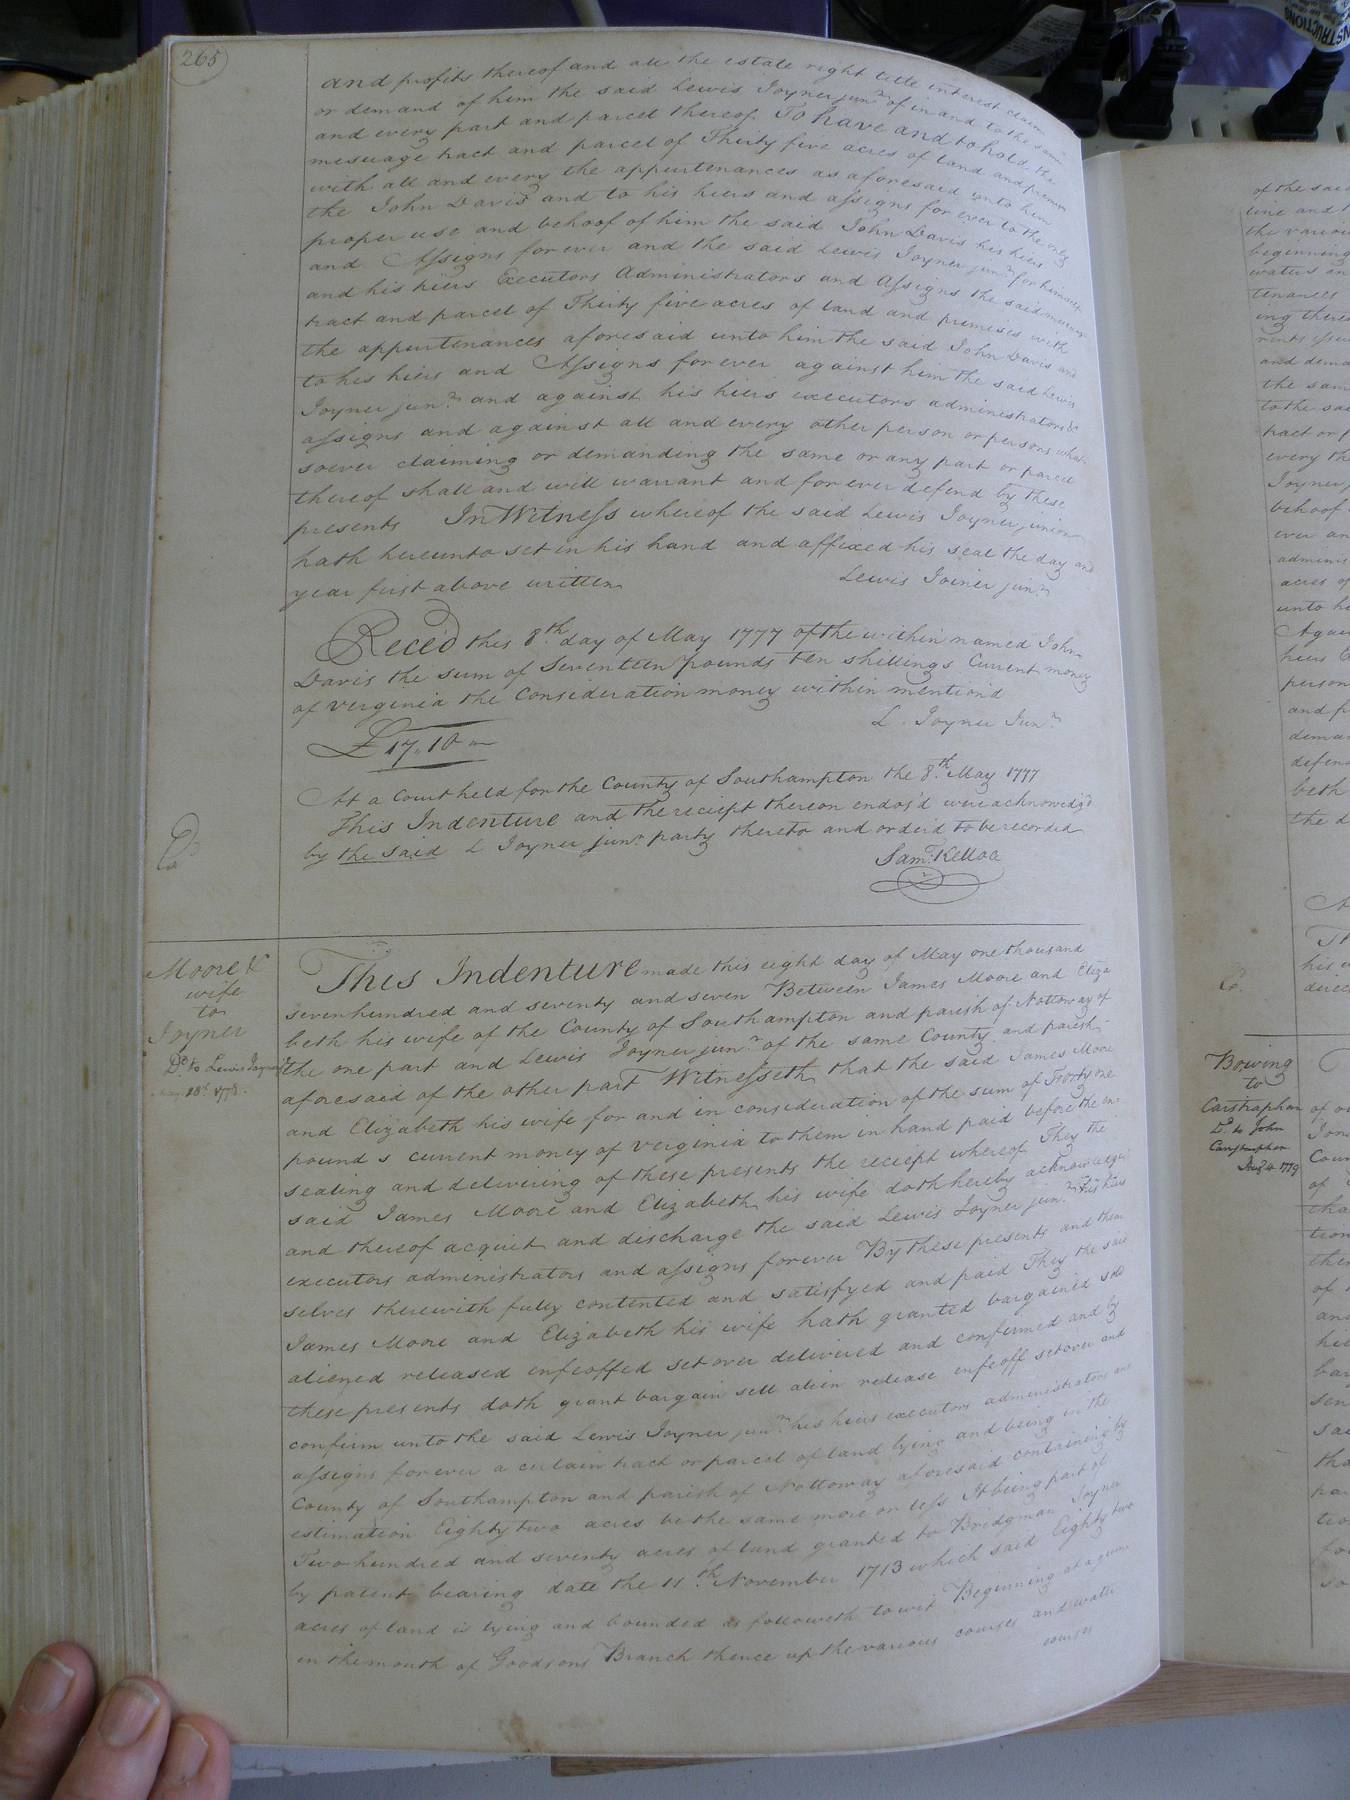 265
and profits thereof and all the estate right title interest claim
or demand of him the said Lewis Joyner junr of in and to the same
and every part and parcel thereof To have and to hold the
mesuage tract and parcel of Thirty five acres of land and premises
with all and every the appurtenances as aforesaid unto him
the John Davis and to his hiers and assigns for ever to the only
proper use and behoof of him the said John Davis his hiers
and Assigns for ever and the said Lewis Joyner junr for himself
and his hiers Executors Administrators and Assigns the said mesuage
tract and parcel of Thirty five acres of land and premises with
the appurtenances aforesaid unto him the said John Davis and
to his hiers and Assigns for ever against him the said Lewis
Joyner junr and against his hiers executors administrators &
assigns and against all and every other person or persons what
soever claiming or demanding the same or any part or parcel
thereof shall and will warrant and for ever defend by these
presents In Witness whereof the said Lewis Joyner junior
hath hereunto set in his hand and affixed his seal the day and
year first above written
Lewis Joiner junr
Rece'd this 8th day of May 1777 of the within named John
Davis the sum of Seventeen pounds ten shillings Current money
of Verginia the Consideration money within mention'd
L. Joyner Junr
£17,,10,,
At a Court held for the County of Southampton the 8th May 1777
This Indenture and the reciept thereon endos'd were acknowledg'd
by the said L Joyner junr party thereto and order'd to be recorded
Saml Kelloe
Moore &
wife
to
Joyner
Dd to Lewis Joyner
18th 1778.
This Indenture made this eight day of May one thousand
seven hundred and seventy and seven Between James Moore and Eliza
beth his wife of the County of Southampton and parish of Nottoway of
the one part and Lewis Joyner junr of the same County and parish
aforesaid of the other part Witnesseth that the said James Moore
and Elizabeth his wife for and in consideration of the sum of Forty one
pounds current money of Verginia to them in hand paid before the en
sealing and delivering of these presents the reciept whereof They the
said James Moore and Elizabeth his wife doth hereby acknowledge
and thereof acquit and discharge the said Lewis Joyner junr his hiers
executors administrators and assigns forever By these presents and them
selves therewith fully contented and satisfyed and paid They the said
James Moore and Elizabeth his wife hath granted bargained sold
aliened released enfeoffed set over delivered and confirmed and by
these presents doth grant bargain sell alien release enfeoff set over and
confirm unto the said Lewis Joyner junr his hiers executors administrators and
assigns for ever a certain tract or parcel of land lying and being in the
County of Southampton and parish of Nottoway aforesaid containing by
estimation Eighty two acres be the same more or less It being part of
Two hundred and seventy acres of land granted to Bridgman Joyner
by patent bearing date the 11th November 1713 which said Eighty two
acres of land is lying and bounded as followeth to wit Beginning at a
in the mouth of Goodsons Branch thence up the various courses and water
courses
of the said
line and
the various
beginning
waters
tenances
ing there
rents
and dema
the same
to the said
tract or p
every the
Joyner
behoof
ever an
adminis
acres of
unto h
Again
hiers
person
and f
deman
defen
beth
the d
Th
his
direc
Bowing
to
Carstraphan
Dd to John
Carstraphan
1779
of
Jon
Coun
of
tha
tion
ther
of
and
hie
bar
sen
sai
tho
par
tio
fo
so